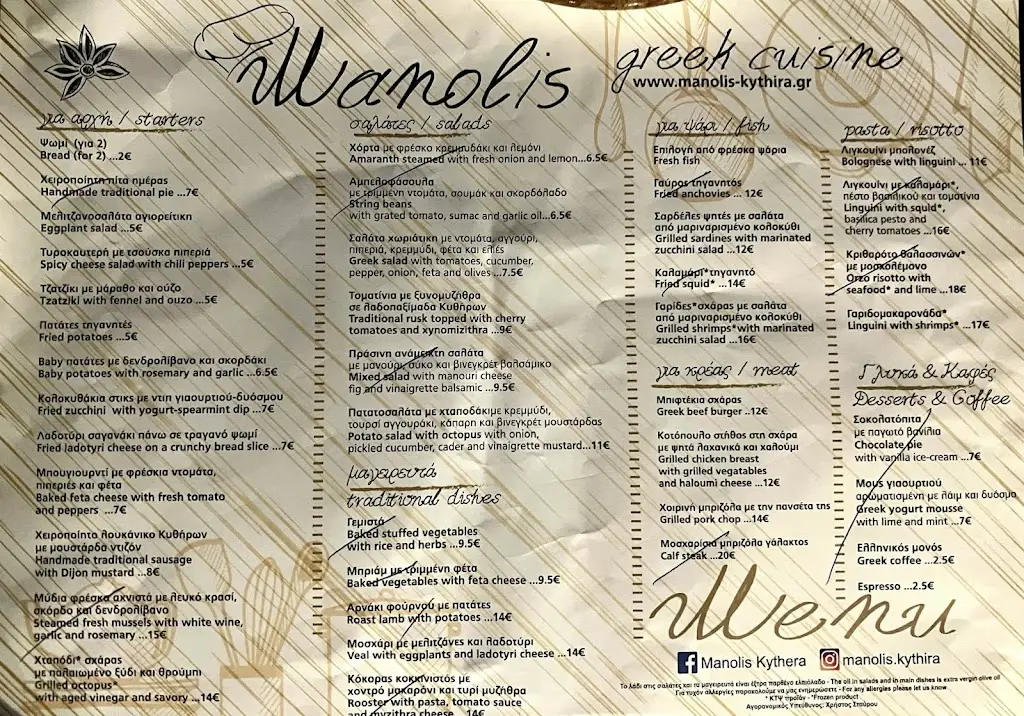 Manolis greek cuisine
www.manolis-kythira.gr
για αρχή / starters
Ψωμί (για 2)
Bread (for 2) ...2€
Χειροποίητη πίτα ημέρας
Handmade traditional pie ...7€
Μελιτζανοσαλάτα αγιορείτικη
Eggplant salad ...5€
Τυροκαυτερή με τσούσκα πιπεριά
Spicy cheese salad with chili peppers ...5€
Τζατζίκι με μάραθο και ούζο
Tzatziki with fennel and ouzo ...5€
Πατάτες τηγανητές
Fried potatoes ...5€
Baby πατάτες με δενδρολίβανο και σκορδάκι
Baby potatoes with rosemary and garlic ...6.5€
Κολοκυθάκια στικς με ντιπ γιαουρτιού-δυόσμου
Fried zucchini with yogurt-spearmint dip ...7€
Λαδοτύρι σαγανάκι πάνω σε τραγανό ψωμί
Fried ladotyri cheese on a crunchy bread slice ...7€
Μπουγιουρντί με φρέσκια ντομάτα,
πιπεριές και φέτα
Baked feta cheese with fresh tomato
and peppers ...7€
Χειροποίητο λουκάνικο Κυθήρων
με μουστάρδα ντιζόν
Handmade traditional sausage
with Dijon mustard ...8€
Μύδια φρέσκα αχνιστά με λευκό κρασί,
σκόρδο και δενδρολίβανο
Steamed fresh mussels with white wine,
garlic and rosemary ...15€
Χταπόδι* σχάρας
με παλαιωμένο ξύδι και θρούμπι
Grilled octopus*
with aged vinegar and savory ...14€
σαλάτες / salads
Χόρτα με φρέσκο κρεμμυδάκι και λεμόνι
Amaranth steamed with fresh onion and lemon...6.5€
Αμπελοφάσουλα
με τριμμένη ντομάτα, σουμάκ και σκορδόλαδο
String beans
with grated tomato, sumac and garlic oil...6.5€
Σαλάτα χωριάτικη με ντομάτα, αγγούρι,
πιπεριά, κρεμμύδι, φέτα και ελιές
Greek salad with tomatoes, cucumber,
pepper, onion, feta and olives ...7.5€
Τοματίνια με ξυνομυζήθρα
σε λαδοπαξίμαδα Κυθήρων
Traditional rusk topped with cherry
tomatoes and xynomizithra ...9€
Πράσινη ανάμεικτη σαλάτα
με μανούρι, σύκο και βινεγκρέτ βαλσάμικο
Mixed salad with manouri cheese
fig and vinaigrette balsamic ...9.5€
Πατατοσαλάτα με χταποδάκιμε κρεμμύδι,
τουρσί αγγουράκι, κάπαρη και βινεγκρέτ μουστάρδας
Potato salad with octopus with onion,
pickled cucumber, cader and vinaigrette mustard...11€
μαγειρευτά
traditional dishes
Γεμιστά
Baked stuffed vegetables
with rice and herbs ...9.5€
Μπριάμ με τριμμένη φέτα
Baked vegetables with feta cheese ...9.5€
Αρνάκι φούρνου με πατάτες
Roast lamb with potatoes ...14€
Μοσχάρι με μελιτζάνες και λαδοτύρι
Veal with eggplants and ladotyri cheese ...14€
Κόκορας κοκκινιστός με
χοντρό μακαρόνι και τυρί μυζήθρα
Rooster with pasta, tomato sauce
and myzithra cheese ...14€
για ψάρι / fish
Επιλογή από φρέσκα ψάρια
Fresh fish
Γαύρος τηγανητός
Fried anchovies ... 12€
Σαρδέλες ψητές με σαλάτα
από μαριναρισμένο κολοκύθι
Grilled sardines with marinated
zucchini salad ...12€
Καλαμάρι*τηγανητό
Fried squid* ...14€
Γαρίδες*σχάρας με σαλάτα
από μαριναρισμένο κολοκύθι
Grilled shrimps*with marinated
zucchini salad ...16€
για κρέας / meat
Μπιφτέκια σχάρας
Greek beef burger ..12€
Κοτόπουλο στήθος στη σχάρα
με ψητά λαχανικά και χαλούμι
Grilled chicken breast
with grilled vegatables
and haloumi cheese ...12€
Χοιρινή μπριζόλα με την πανσέτα της
Grilled pork chop ...14€
Μοσχαρίσια μπριζόλα γάλακτος
Calf steak ...20€
pasta / risotto
Λιγκουίνι μπολονέζ
Bolognese with linguini .. 11€
Λιγκουίνι με καλαμάρι*,
πέστο βασιλικού και τοματίνια
Linguini with squid*,
basilica pesto and
cherry tomatoes ...16€
Κριθαρότο θαλασσινών*
με μοσχολέμονο
Orzo risotto with
seafood* and lime ...18€
Γαριδομακαρονάδα*
Linguini with shrimps* ...17€
Γλυκά & Καφές
Desserts & Coffee
Σοκολατόπιτα
με παγωτό βανίλια
Chocolate pie
with vanilla ice-cream ...7€
Μους γιαουρτιού
αρωματισμένη με λάιμ και δυόσμο
Greek yogurt mousse
with lime and mint ...7€
Ελληνικός μονός
Greek coffee ...2.5€
Espresso ...2.5€
Menu
Manolis Kythera manolis.kythira
Το λάδι στις σαλάτες και τα μαγειρευτά είναι έξτρα παρθένο ελαιόλαδο - The oil in salads and in main dishes is extra vergin olive oil
Για τυχόν αλλεργίες παρακαλούμε να μας ενημερώσετε - For any allergies please let us know
* ΚΤΨ προϊόν - *Frozen product
Αγορανομικός Υπεύθυνος: Χρήστος Σταύρου